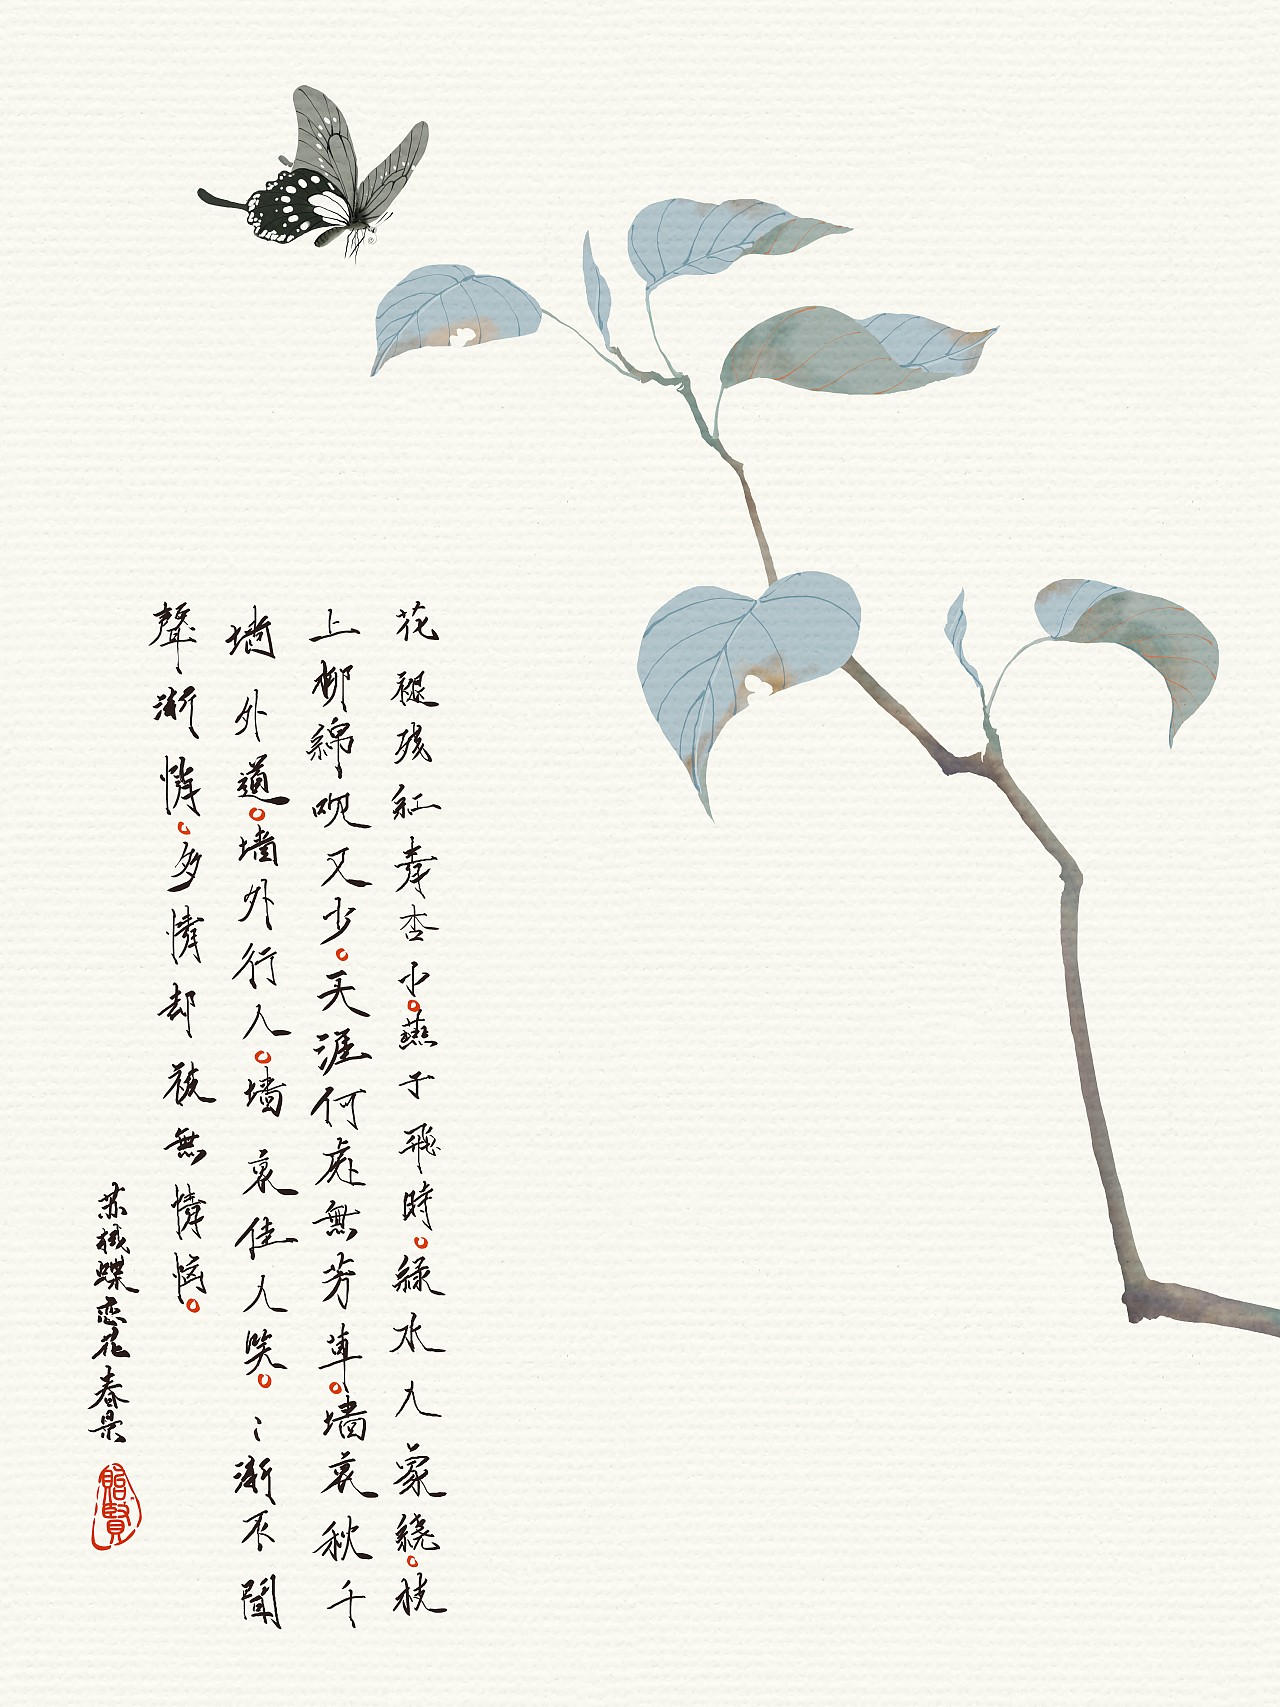 花褪残紅青杏小。燕子飛時。緑水人家繞。枝
上柳綿吹又少。天涯何處無芳草。墻裏秋千
墙外道。墙外行人。墙裏佳人笑。〻漸不聞
聲漸悄。多情却被無情恼。
苏轼蝶恋花春景
貽賢